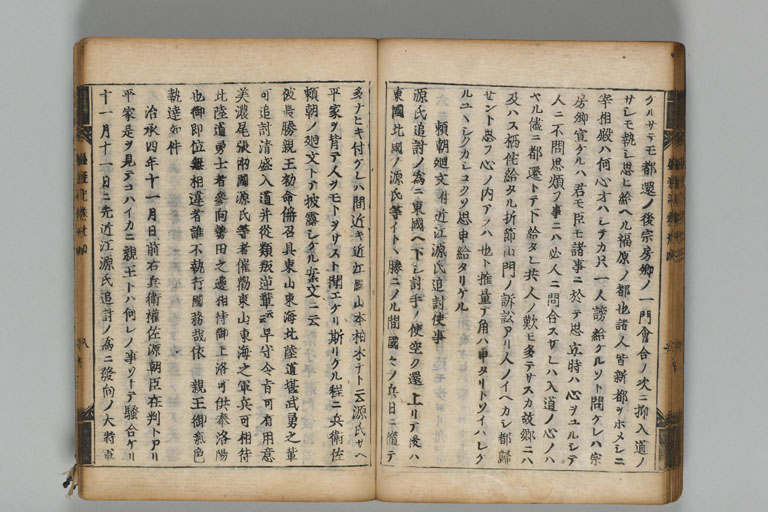 クルサテモ都還ノ後宗房卿ノ一門會合ノ次ニ抑入道ノ
サシモ執シ思ヒ給ヘル福原ノ都也諸人皆新都ヲホメシニ
宰相殿ハ何心オハシテカ只一人謗給ケルソト問ケレハ宗
房卿宣ケルハ君モ臣モ諸事ニ於テ思立時ハ心ヲユルシテ
人ニ不問思煩フ事ニハ必人ニ問合スサレハ入道ノ心ノハ
ヤル儘ニ都還トテ下給タレ共人ノ歎ヒ多テサスカ故郷ニハ
及ハス柄侘給タル折節山門ノ訴訟アリ人ノイヘカシ都歸
セント思フ心ノ内アラハ也ト推量テ角ハ申タリトソイハレケ
ルユヽシクカシコクソ思申給タリケル
賴朝廻文附近江源氏追討使事
源氏追討ノ爲ニ東國ヘ下シ討手ノ使空ク還上リテ後ハ
東國北國ノ源氏等イトヽ勝ニノル間國々ノ兵日ニ隨テ
多ナヒキ付ケレハ間近キ近江國山本柏木ナト云源氏サヘ
平家ヲ背テ人ヲモトヲサスト聞エケリ斯リケル程ニ兵衛佐
賴朝ノ廻文トテ披露シケル案文ニ云
被最勝親王勅命偁召具東山東海北陸道堪武勇之輩
可追討清盛入道并從類叛逆輩云早守令旨可有用意
美濃尾張兩國源氏等者催勸東山東海之軍兵可相待
北陸道勇士者參向勢田之邊相待御上洛可供奉洛陽
也御即位無相違者誰不執行國務哉依 親王御氣色
執達如件
治承四年十一月日前右兵衛權佐源朝臣在判トアリ
平家是ヲ見テコハイカニ親王トハ何レノ事ソトテ騒合ケリ
十一月十一日ニ先近江源氏追討ノ爲ニ發向ノ大將軍